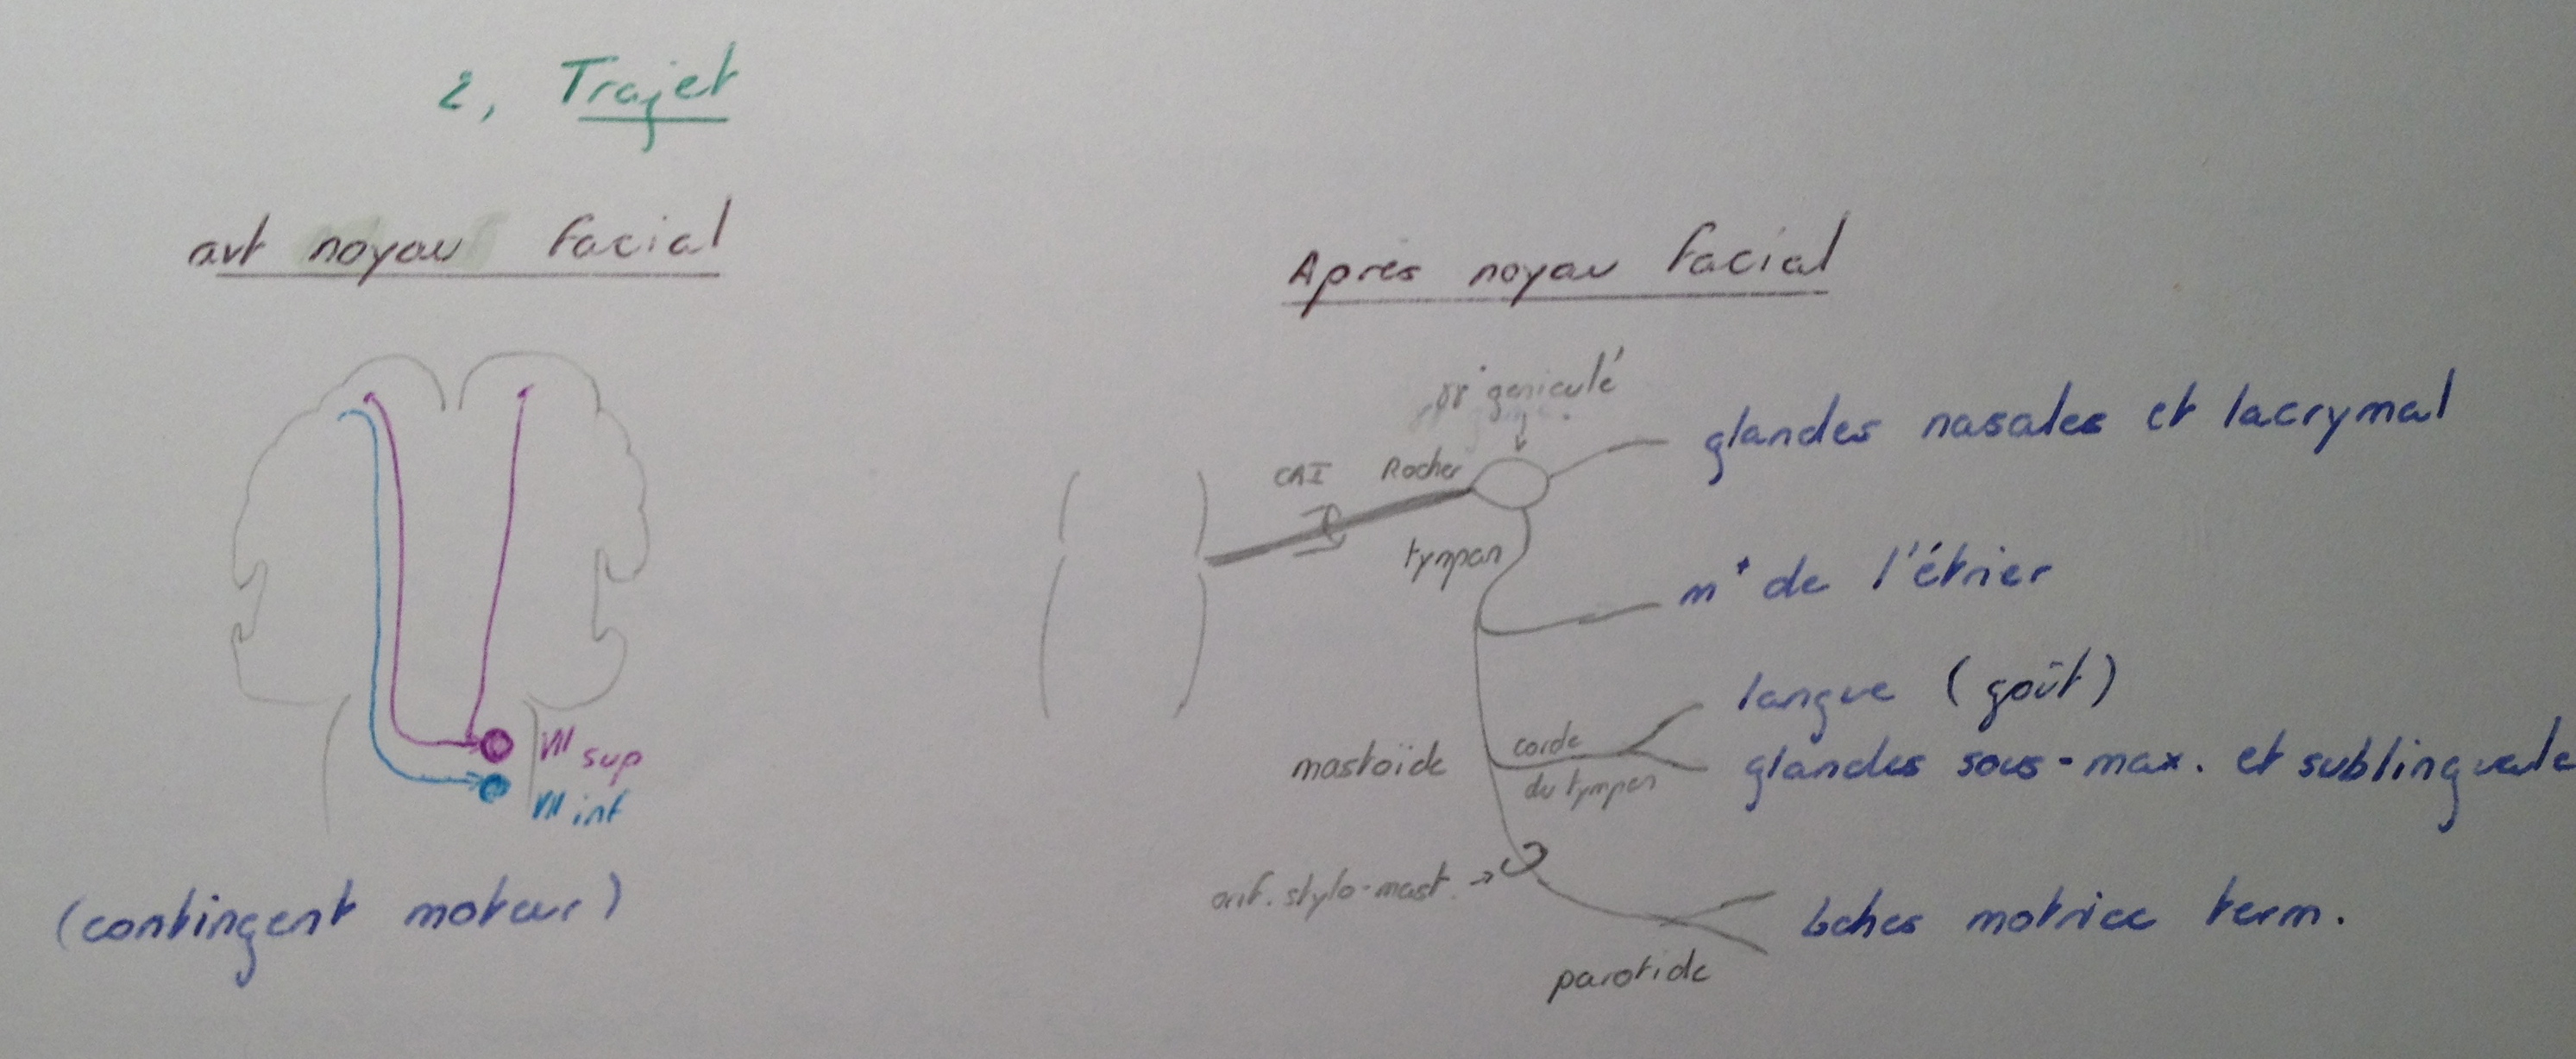 2, Trajet
avt noyau facial
VII sup
VII inf
(contingent moteur)
Après noyau facial
gg° geniculé
CAI
Rocher
glandes nasales et lacrymal
tympan
m° de l'étrier
langue (goût)
mastoïde
corde
du tympan
glandes sous-max. et sublinguale
orif. stylo-mast.
bches motrice term.
parotide